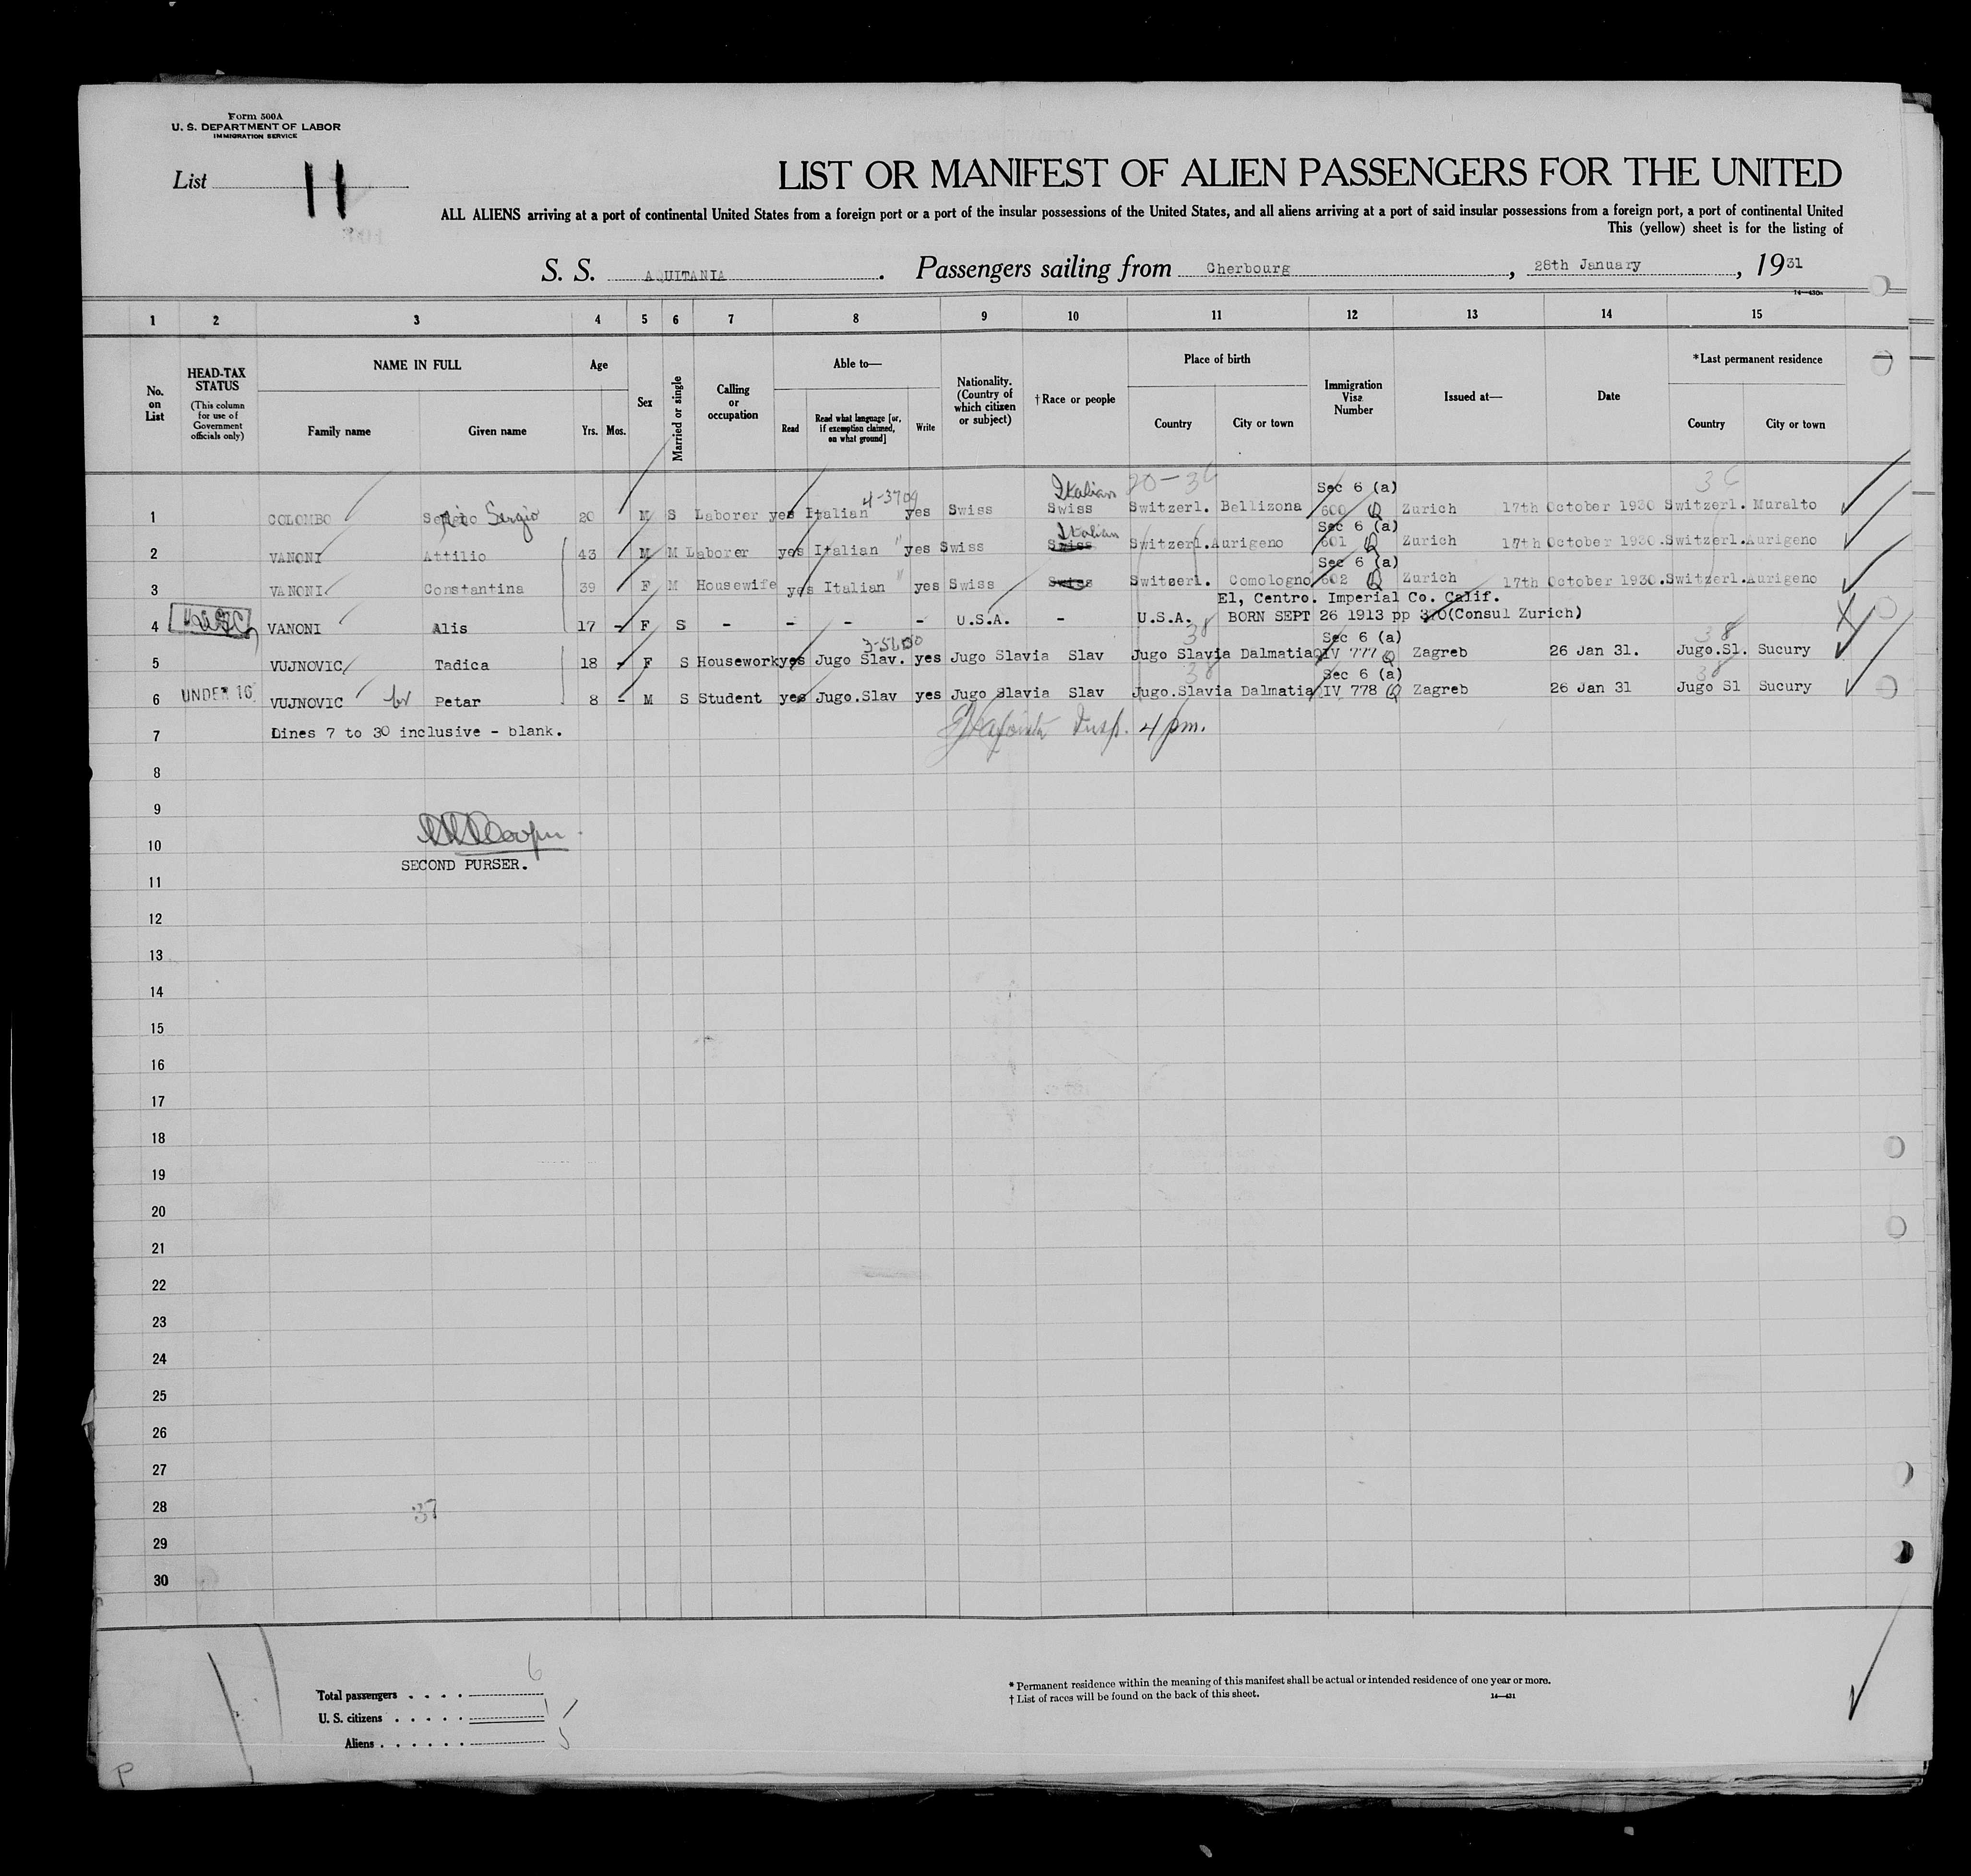 Form 500A
U. S. DEPARTMENT OF LABOR
IMMIGRATION SERVICE
List 11
LIST OR MANIFEST OF ALIEN PASSENGERS FOR THE UNITED
ALL ALIENS arriving at a port of continental United States from a foreign port or a port of the insular possessions of the United States, and all aliens arriving at a port of said insular possessions from a foreign port, a port of continental United
This (yellow) sheet is for the listing of
S. S. AQUITANIA. Passengers sailing from Cherbourg, 28th January, 1931
1 2 3 4 5 6 7 8 9 10 11 12 13 14 15
No. on List
HEAD-TAX STATUS (This column for use of Government officials only)
NAME IN FULL
Family name
Given name
Age
Yrs. Mos.
Sex
Married or single
Calling or occupation
Able to—
Read
Read what language [or, if exemption claimed, on what ground]
Write
Nationality. (Country of which citizen or subject)
†Race or people
Place of birth
Country
City or town
Immigration Visa Number
Issued at—
Date
*Last permanent residence
Country
City or town
4-3709 Italian 20-36 Sec 6 (a) 36
1 COLOMBO Sergio 20 M S Laborer yes Italian yes Swiss Swiss Switzerl. Bellizona 600 Q Zurich 17th October 1930 Switzerl. Muralto
Italian Sec 6 (a)
2 VANONI Attilio 43 M M Laborer yes Italian " yes Swiss Swiss Switzerl. Aurigeno 601 Q Zurich 17th October 1930. Switzerl. Aurigeno
Sec 6 (a)
3 VANONI Constantina 39 F M Housewife yes Italian " yes Swiss Swiss Switserl. Comologno 602 Q Zurich 17th October 1930. Switzerl. Aurigeno
El, Centro. Imperial Co. Calif.
4 VANONI Alis 17 - F S - - - - U.S.A. - U.S.A. BORN SEPT 26 1913 pp 370 (Consul Zurich)
38 Sec 6 (a) 38
5 VUJNOVIC Tadica 18 - F S Housework yes Jugo Slav. yes Jugo Slavia Slav Jugo Slavia Dalmatia QIV 777 Q Zagreb 26 Jan 31. Jugo.Sl. Sucury
38 Sec 6 (a) 38
6 UNDER 16 VUJNOVIC br Petar 8 - M S Student yes Jugo.Slav yes Jugo Slavia Slav Jugo.Slavia Dalmatia IV 778 Q Zagreb 26 Jan 31 Jugo Sl Sucury
7 Lines 7 to 30 inclusive - blank. Insp. 4 pm.
8
9
10
SECOND PURSER.
11
12
13
14
15
16
17
18
19
20
21
22
23
24
25
26
27
28 37
29
30
Total passengers . . . . 6
U. S. citizens . . . . . 1
Aliens . . . . . . 5
* Permanent residence within the meaning of this manifest shall be actual or intended residence of one year or more.
† List of races will be found on the back of this sheet.
14—431
P